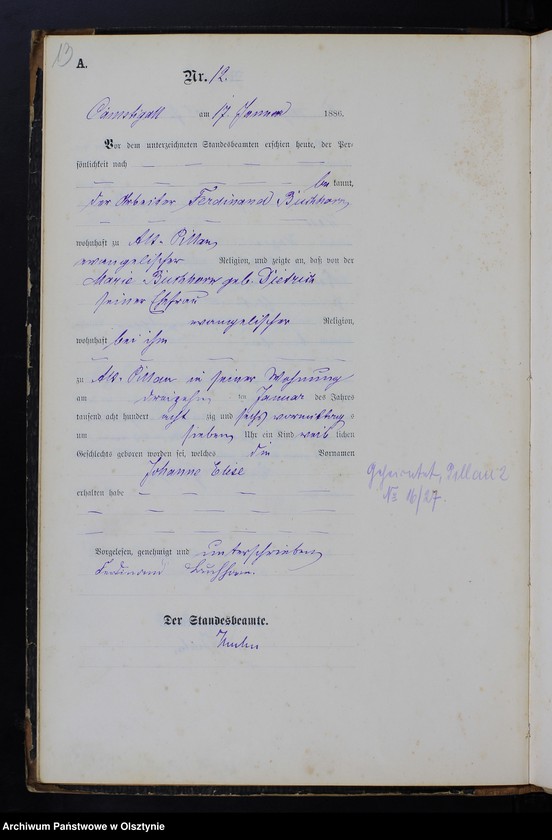 13
A.
Nr. 12.
Camstigall am 17 Januar 1886.
Vor dem unterzeichneten Standesbeamten erschien heute, der Per-
sönlichkeit nach
bekannt,
der Arbeiter Ferdinand Buchhorn
wohnhaft zu Alt-Pillau
evangelischer Religion, und zeigte an, daß von der
Marie Buchhorn geb. Dietrich
seiner Ehefrau
evangelischer Religion,
wohnhaft bei ihm
zu Alt-Pillau in seiner Wohnung
am dreizehn ten Januar des Jahres
tausend acht hundert acht zig und sechs vormittag s
um sieben Uhr ein Kind weib lichen
Geschlechts geboren worden sei, welches die Vornamen
Johanne Elise
erhalten habe
Vorgelesen, genehmigt und unterschrieben
Ferdinand Buchhorn.
Der Standesbeamte.
Geheiratet, Pillau 2
No 16/27.
Archiwum Państwowe w Olsztynie